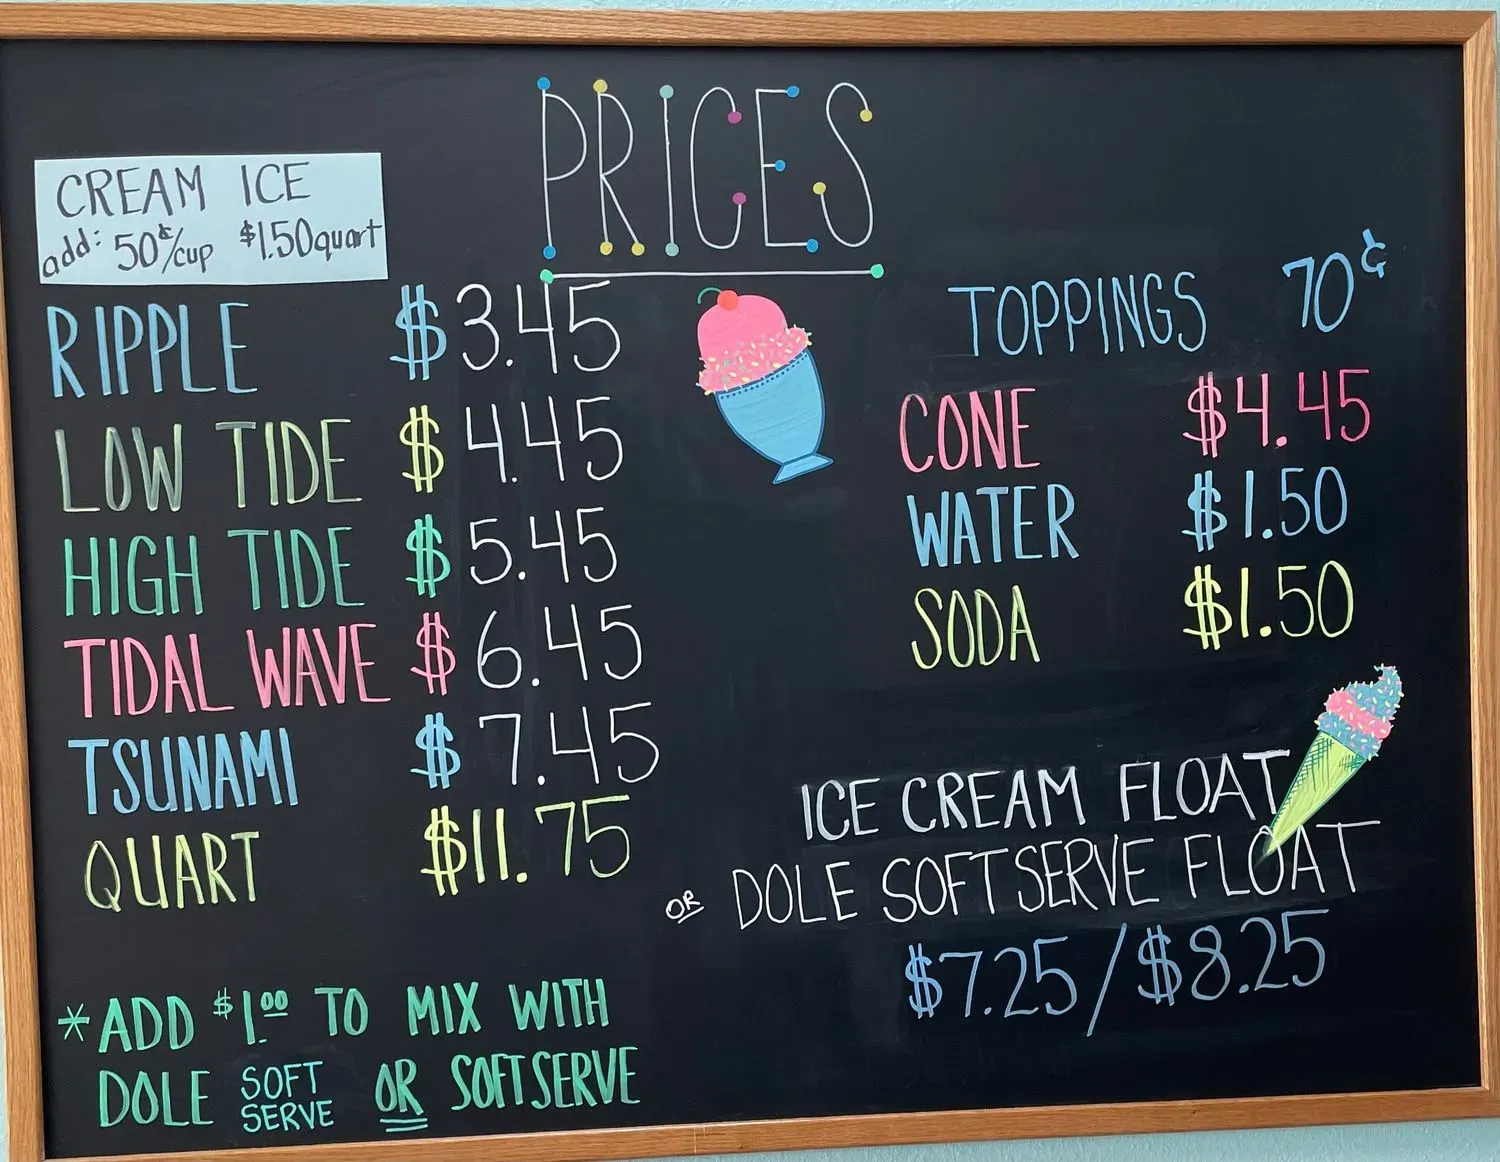 PRICES
CREAM ICE
add: 50¢/cup $1.50 quart
RIPPLE $3.45
LOW TIDE $4.45
HIGH TIDE $5.45
TIDAL WAVE $6.45
TSUNAMI $7.45
QUART $11.75
*ADD $1.00 TO MIX WITH
DOLE SOFT SERVE OR SOFT SERVE
TOPPINGS 70¢
CONE $4.45
WATER $1.50
SODA $1.50
ICE CREAM FLOAT
OR DOLE SOFT SERVE FLOAT
$7.25/$8.25